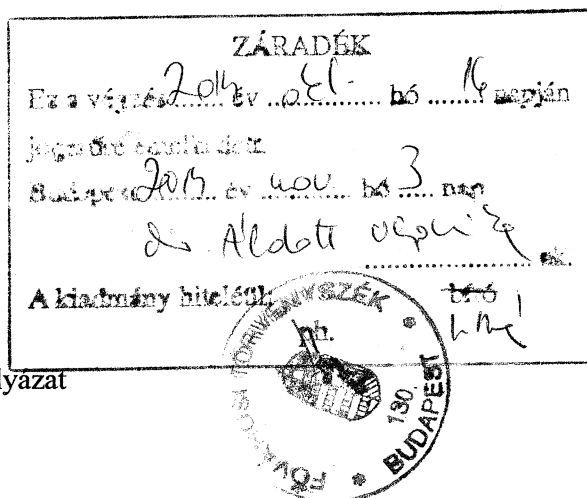 ZÁRADÉK
Ez a végzés év okt. hó 16 napján
jogerőre emelkedett.
Budapest év nov. hó 3 nap
dr Áldott sk.
A kiadmány hiteléül: bíró
ph.
FŐVÁROSI TÖRVÉNYSZÉK * BUDAPEST *
130.
lyázat